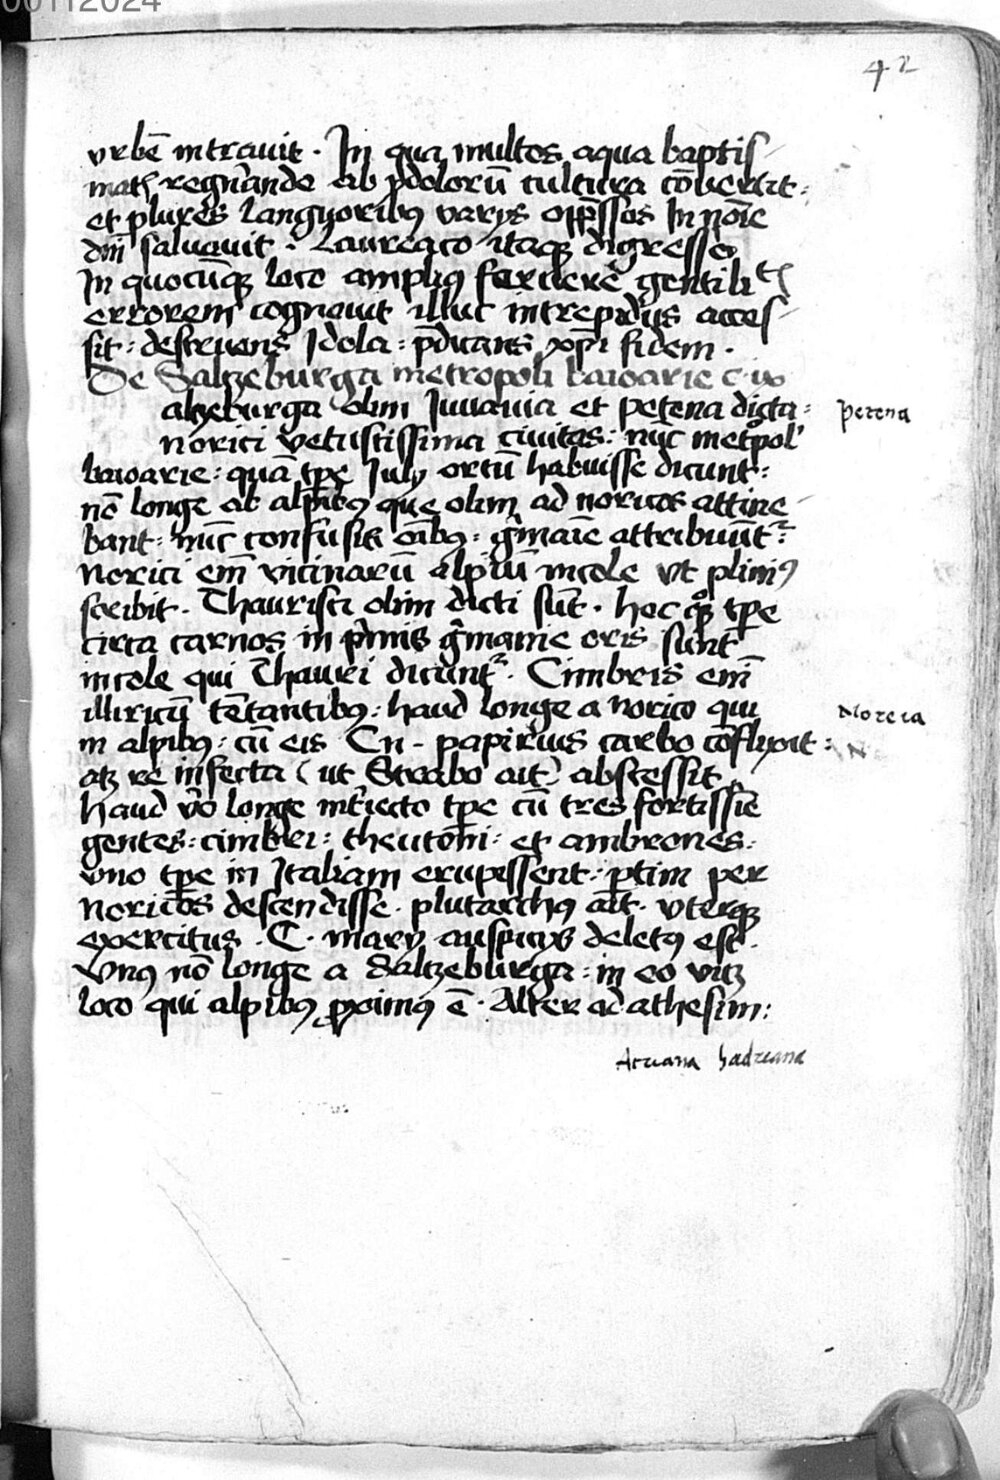 00112024
42
vrbē intrauit · In qua multos aqua baptis-
mat͛ regn̄ande ab ydolorū cultura cōvertit :
et plures languoribꝰ varijs opp̄ssos In nōie
dn̄i saluauit · Laureaco itaqꝫ digresso
In quocūqꝫ loco ampliꝰ feruere gentilit͛
errorem cognouit illuc intrepidus acces-
sit : destruens Idola : p̄dicans xp̄i fidem ·
De Saltzeburga metropoli baioarie c · ix
altzeburga olim Iuuauia et petena dicta :
petena
norici vetustissima ciuitas : nūc met̄pol'
baioarie : quā tp̄e Iulij ortū habuisse dicunt :
nō longe ab alpibꝰ que olim ad noricos attine-
bant : nūc confusis oībꝰ : ḡmaīe attribuūt᷑ :
norici em̄ vicinarū alpiū incole vt pliniꝰ
scribit · Thaurisci olim dicti sūt · hoc qͦꝫ tp̄e
circa carnos in p̄mis ḡmanie oris sunt
incole qui Thauri dicunt᷑ · Cimbris em̄
illiricū tētantibꝰ : haud longe a norico qui
Noreia
in alpibꝰ : cū eis Cn · papirius carbo cōflixit :
atqꝫ re infecta ( ut Strabo ait ) abscessit
haud v̄o longe int̄iecto tp̄e cū tres fortissīe
gentes : cimbri : theutoni : et ambrones :
vno tp̄e in Italiam erupissent : ptim per
noricos descendisse · plutarchꝰ ait · vterqꝫ
exercitus · C · marij auspicijs deletꝰ est ·
Vnꝰ nō longe a Saltzeburga : in eo vicꝫ
loco qui alpibꝰ ꝓximꝰ ē · Alter ad athesim :
hadriana